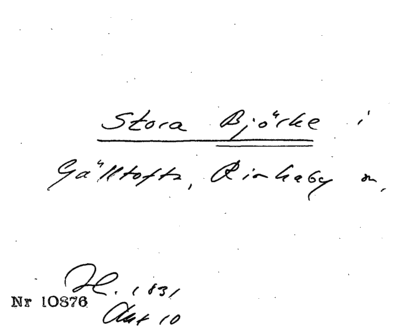 Stora Björke i
Gälltofta, Rinkaby sn,
H. 1831
Nr 10876
Akt 10